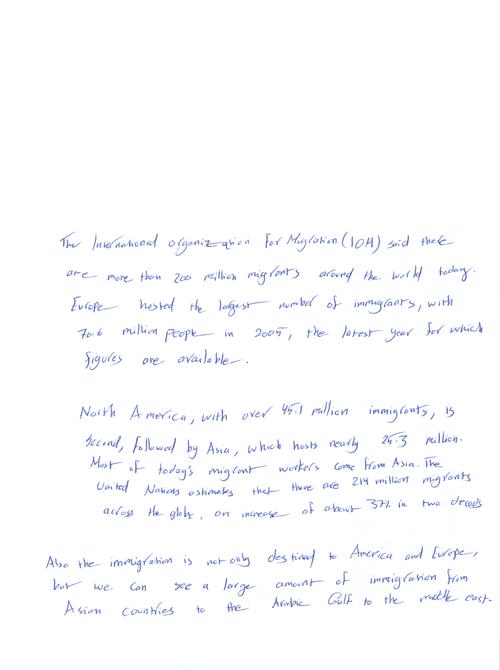 The International organization For Migration (IOM) said there
are more than 200 million migrants around the world today.
Europe hosted the largest number of immigrants, with
70.6 million people in 2005, the latest year for which
figures are available.
North America, with over 45.1 million immigrants, is
Second, Followed by Asia, which hosts nearly 25.3 million.
Most of today's migrant workers come from Asia. The
United Nations estimates that there are 214 million migrants
across the globe, an increase of about 37% in two decads
Also the immigration is not only destined to America and Europe,
but we can see a large amount of immigration from
Asian countries to the Arabic Gulf to the middle east.